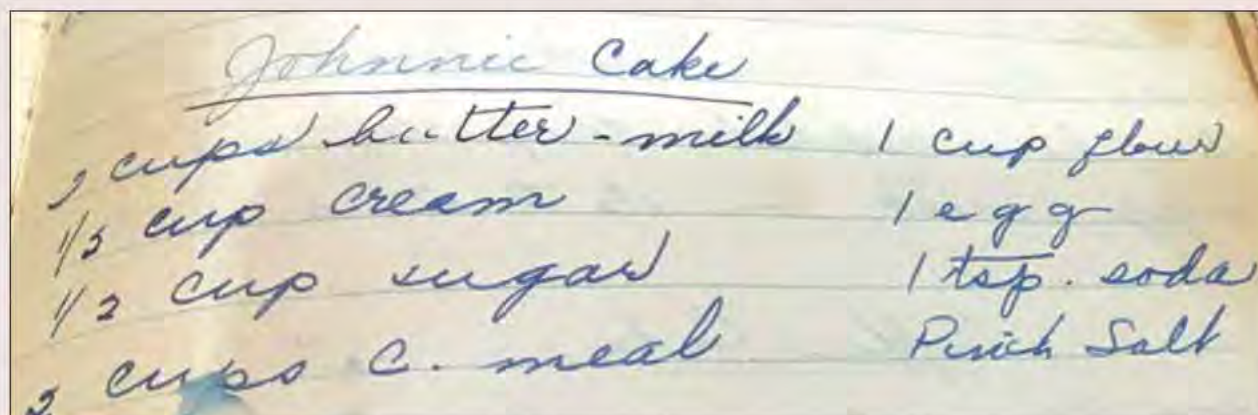 Johnnie Cake
2 cups butter-milk
1/2 cup cream
1/2 cup sugar
2 cups c. meal
1 cup flour
1 egg
1 tsp. soda
Pinch Salt